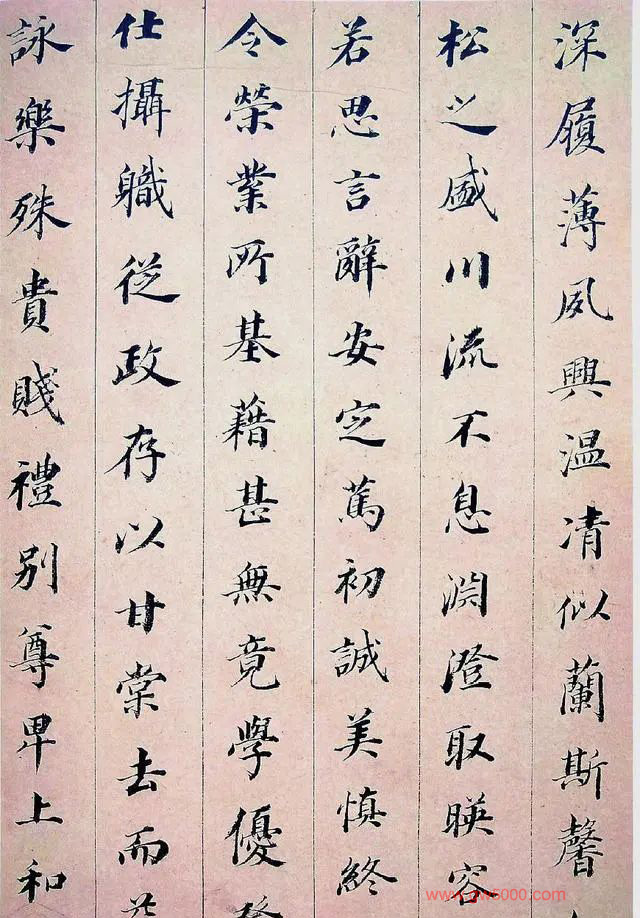 深履薄夙興温凊似蘭斯馨
松之盛川流不息渊澄取暎容
若思言辭安定篤初誠美慎終
令榮業所基藉甚無竟學優
仕攝軄從政存以甘棠去而
詠樂殊貴賤禮别尊卑上和